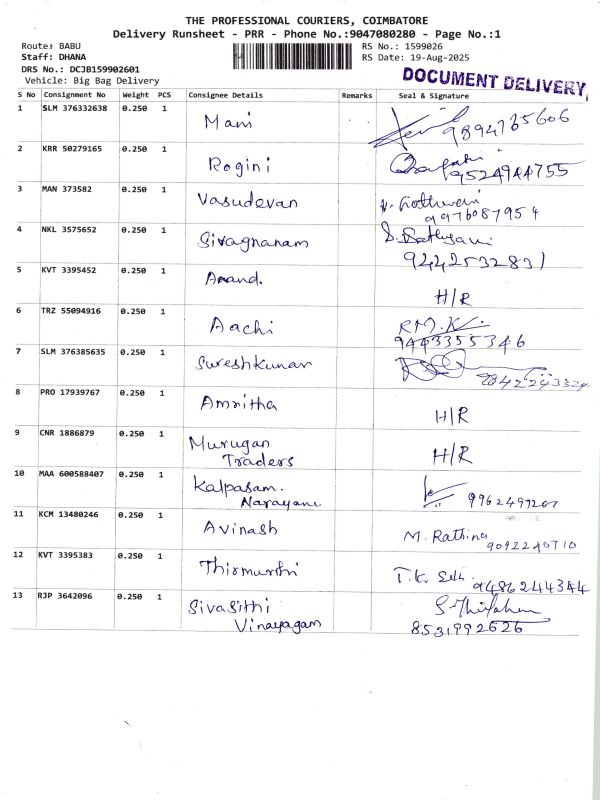 THE PROFESSIONAL COURIERS, COIMBATORE
Delivery Runsheet - PRR - Phone No.:9047080280 - Page No.:1
Route: BABU
RS No.: 1599026
Staff: DHANA
RS Date: 19-Aug-2025
DRS No.: DCJB159902601
Vehicle: Big Bag Delivery
DOCUMENT DELIVERY
S No Consignment No Weight PCS Consignee Details Remarks Seal & Signature
1 SLM 376332638 0.250 1 Mani 9894765606
2 KRR 50279165 0.250 1 Rogini 9524944755
3 MAN 373582 0.250 1 Vasudevan
9976087954
4 NKL 3575652 0.250 1 Sivagnanam
9442253283
5 KVT 3395452 0.250 1 Anand. H/R
6 TRZ 55094916 0.250 1 Aachi RM.K.
9443355346
7 SLM 376385635 0.250 1 Sureshkumar 9842243324
8 PRO 17939767 0.250 1 Amritha H/R
9 CNR 1886879 0.250 1 Murugan
Traders H/R
10 MAA 600588407 0.250 1 Kalpasam.
Narayani 9962499207
11 KCM 13480246 0.250 1 Avinash M. Rathina
9092240710
12 KVT 3395383 0.250 1 Thirmurthi T.K.
9486244344
13 RJP 3642096 0.250 1 Sivasithi
Vinayagam 8531992626